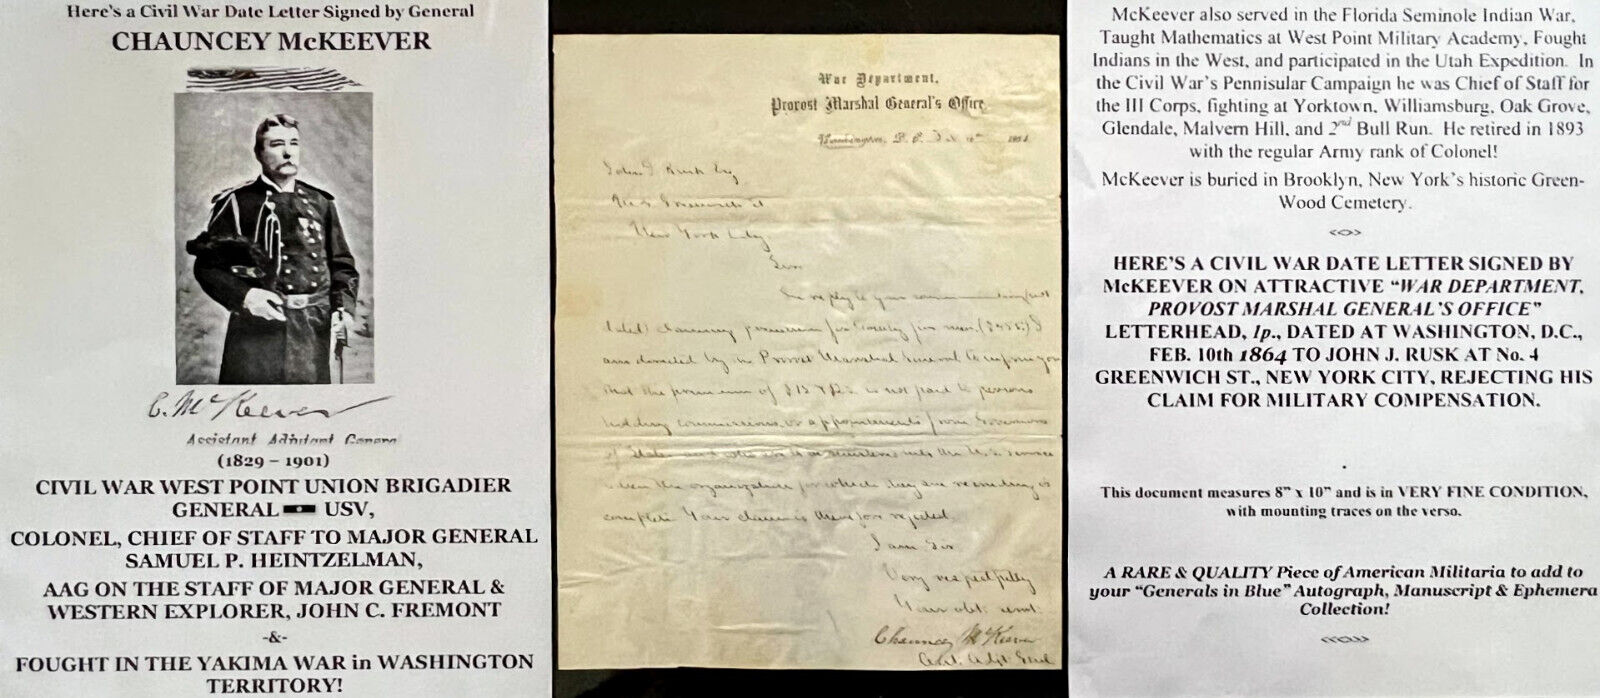 Here's a Civil War Date Letter Signed by General
CHAUNCEY McKEEVER
C. McKeever
Assistant Adjutant Genera
(1829 – 1901)
CIVIL WAR WEST POINT UNION BRIGADIER
GENERAL USV,
COLONEL, CHIEF OF STAFF TO MAJOR GENERAL
SAMUEL P. HEINTZELMAN,
AAG ON THE STAFF OF MAJOR GENERAL &
WESTERN EXPLORER, JOHN C. FREMONT
-&-
FOUGHT IN THE YAKIMA WAR in WASHINGTON
TERRITORY!
War Department,
Provost Marshal General's Office,
Washington, D. C. Feb 10th 1864
John J Rusk Esq
No 4 Greenwich St
New York City
Sir
In reply to your communication
claiming premium for
am directed by the Provost Marshal General to inform you
that the premium of is not paid to persons
holding commissions or appointments from Governors
of States and who are not mustered into the U.S. service
when the organization for which they are recruiting is
complete Your claim is therefore rejected.
I am Sir
Very respectfully
Your obt. servt.
Chauncey McKeever
Asst. Adjt. Genl
McKeever also served in the Florida Seminole Indian War,
Taught Mathematics at West Point Military Academy, Fought
Indians in the West, and participated in the Utah Expedition. In
the Civil War's Pennisular Campaign he was Chief of Staff for
the III Corps, fighting at Yorktown, Williamsburg, Oak Grove,
Glendale, Malvern Hill, and 2nd Bull Run. He retired in 1893
with the regular Army rank of Colonel!
McKeever is buried in Brooklyn, New York's historic Green-
Wood Cemetery.
HERE'S A CIVIL WAR DATE LETTER SIGNED BY
McKEEVER ON ATTRACTIVE “WAR DEPARTMENT,
PROVOST MARSHAL GENERAL'S OFFICE”
LETTERHEAD, 1p., DATED AT WASHINGTON, D.C.,
FEB. 10th 1864 TO JOHN J. RUSK AT No. 4
GREENWICH ST., NEW YORK CITY, REJECTING HIS
CLAIM FOR MILITARY COMPENSATION.
This document measures 8” x 10” and is in VERY FINE CONDITION,
with mounting traces on the verso.
A RARE & QUALITY Piece of American Militaria to add to
your “Generals in Blue” Autograph, Manuscript & Ephemera
Collection!